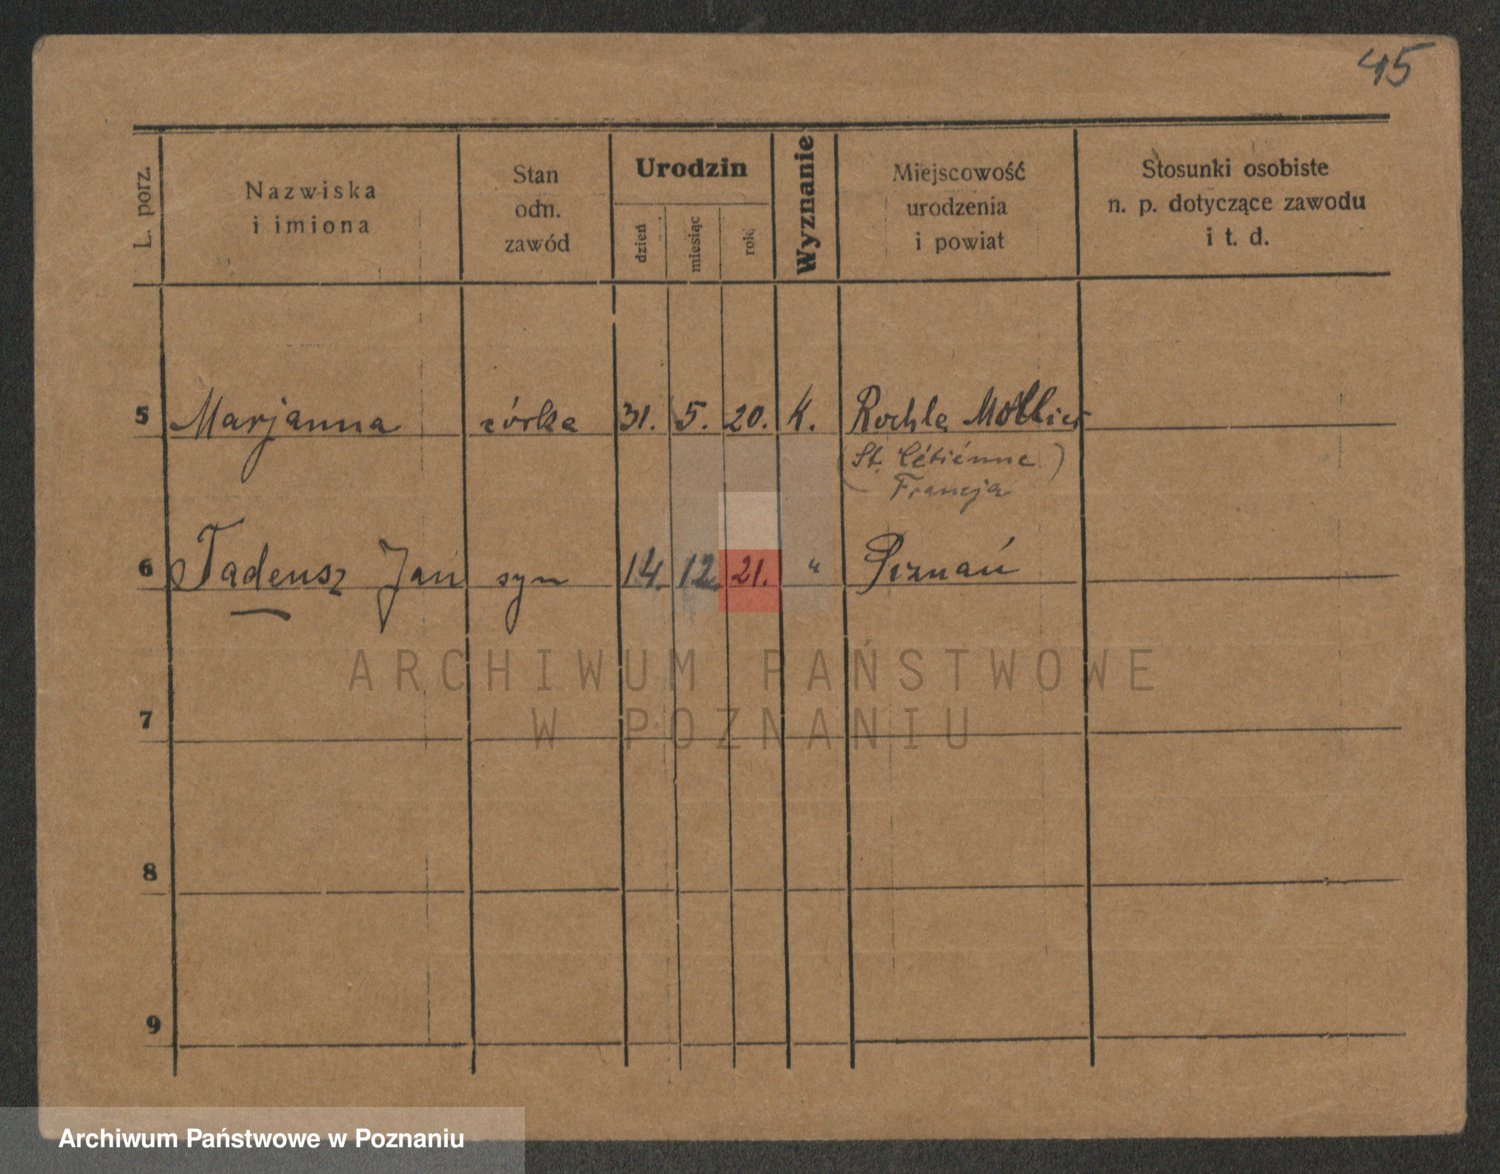 45
L. porz.
Nazwiska
i imiona
Stan
odn.
zawód
Urodzin
dzień
miesiąc
rok
Wyznanie
Miejscowość
urodzenia
i powiat
Stosunki osobiste
n. p. dotyczące zawodu
i t. d.
5 Marjanna córka 31. 5. 20. K. Rochla
(St.
Francja
6 Tadeusz Jan syn 14. 12. 21. " Poznań
ARCHIWUM PAŃSTWOWE
W POZNANIU
7
8
9
Archiwum Państwowe w Poznaniu